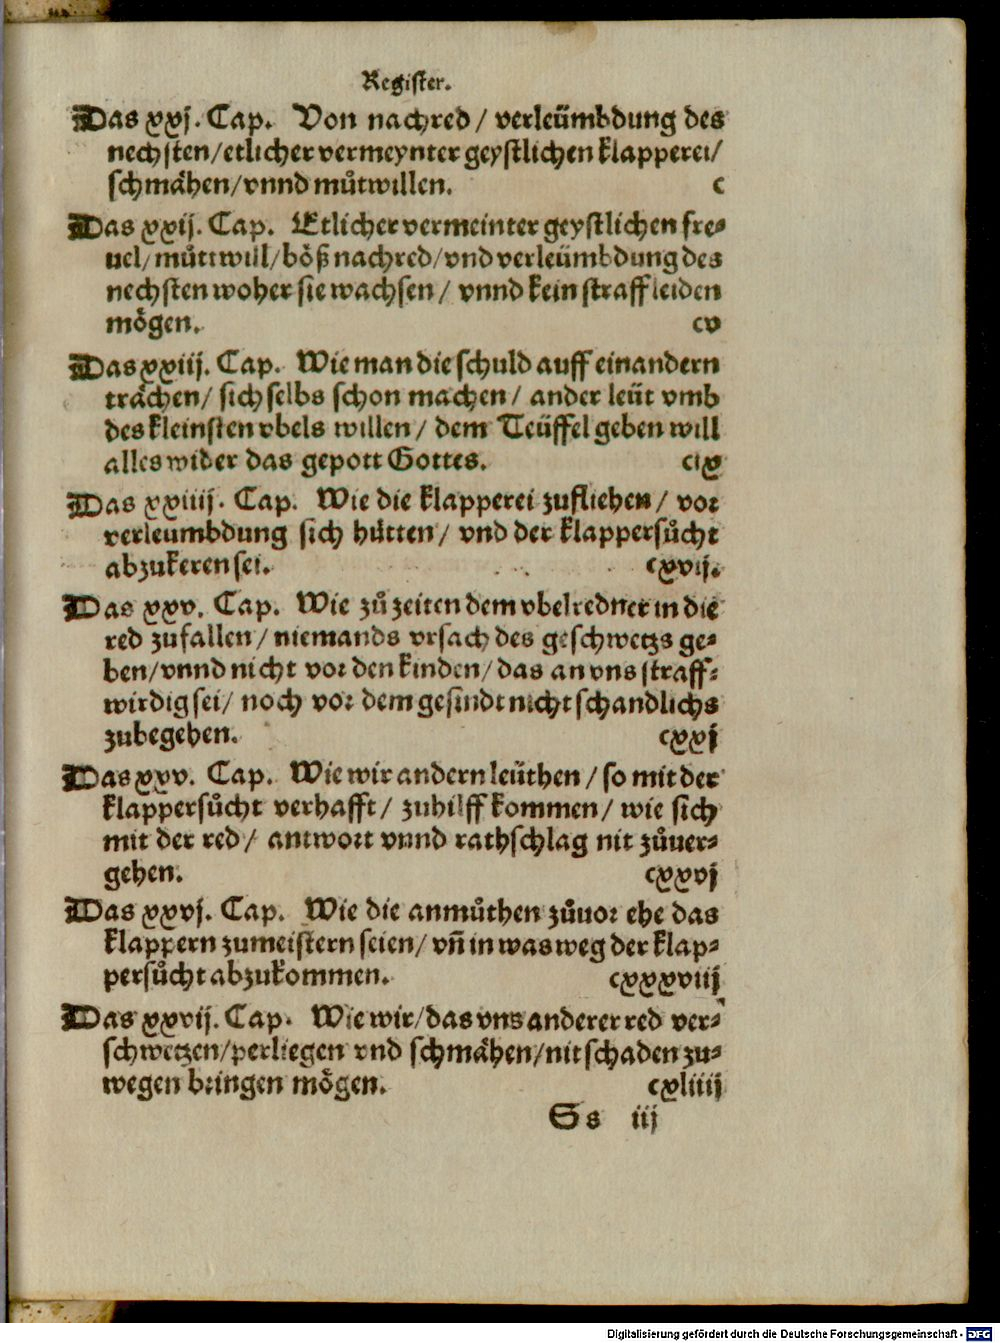 Register.
Das xxj. Cap. Von nachred / verleümbdung des
nechsten/etlicher vermeynter geystlichen klapperei/
schmähen/vnnd můtwillen. c
Das xxij. Cap. Etlicher vermeinter geystlichen fre⸗
uel/ můttwill/böß nachred/vnd verleümbdung des
nechsten woher sie wachsen / vnnd kein straff leiden
mögen. cv
Das xxiij. Cap. Wie man die schuld auff einandern
trächen/ sich selbs schon machen / ander leüt vmb
des kleinsten vbels willen / dem Teüffel geben will
alles wider das gepott Gottes. cix
Das xxiiij. Cap. Wie die klapperei zufliehen / vor
verleumbdung sich hütten / vnd der klappersůcht
abzukeren sei. cxvij.
Das xxv. Cap. Wie zů zeiten dem vbelredner in die
red zufallen / niemands vrsach des geschwetzs ge⸗
ben/vnnd nicht vor den kinden/das an vns straff⸗
wirdig sei/ noch vor dem gesindt nicht schandlichs
zubegehen. cxxj
Das xxv. Cap. Wie wir andern leüthen / so mit der
klappersůcht verhafft / zuhilff kommen / wie sich
mit der red / antwort vnnd rathschlag nit zůuer⸗
gehen. cxxvj
Das xxvj. Cap. Wie die anmůthen zůuor ehe das
klappern zumeistern seien / vñ in was weg der klap⸗
persůcht abzukommen. cxxxviij
Das xxvij. Cap. Wie wir/das vns anderer red ver⸗
schwetzen/verliegen vnd schmähen/nit schaden zu⸗
wegen bringen mögen. cxliiij
Ss iij
Digitalisierung gefördert durch die Deutsche Forschungsgemeinschaft - DFG